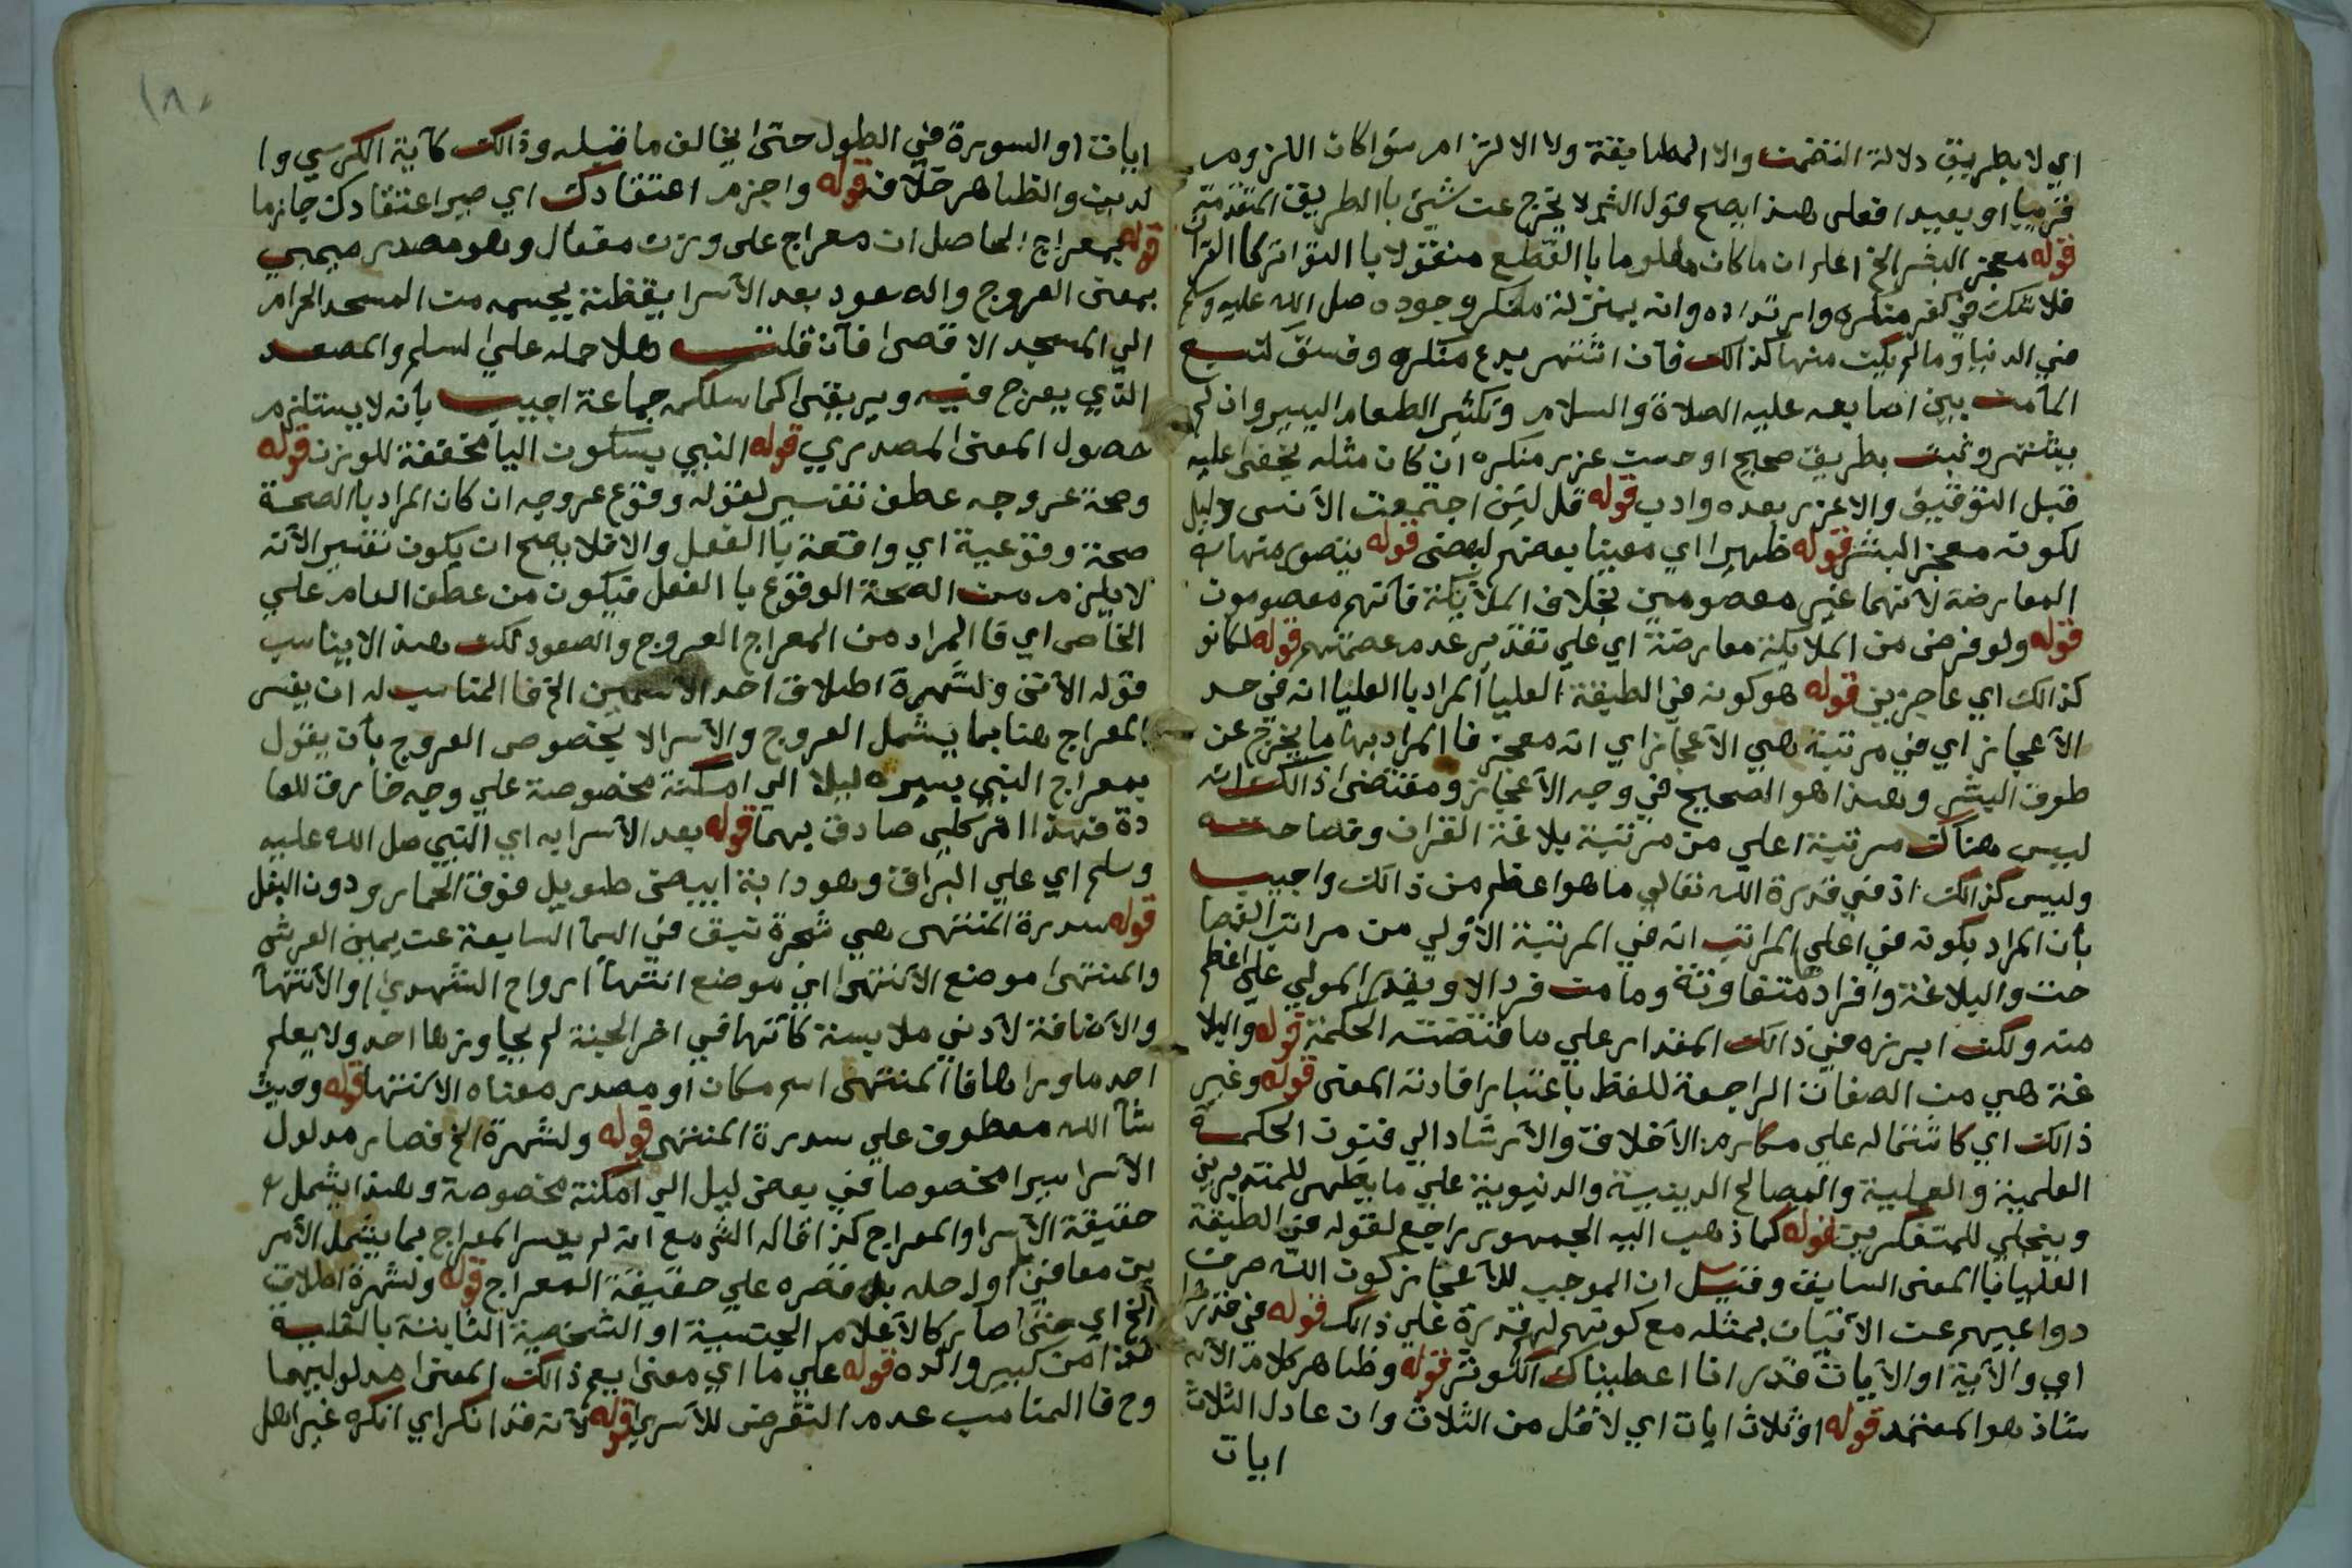 اي لا بطريق دلالة التضمن والا المطابقة ولا الالتزام سواكان اللزوم
قريبا او بعيدا فعلى هذا يصح قول الشم لا يخرج عن شيئ باالطريق المتقدمة
قوله معجز البشر الخ اعلم ان ماكان معلوما باالقطع منقولا باالتواتر كاالقرآن
فلا شك في كفر منكره وارتداده وانه بمنزلة منكر وجوده صل الله عليه وسلم
في الدنيا وما لم يكن منها كذالك فآن اشتهر بدع منكره وفسق كنبع
المآ من بين اصابعه عليه الصلاة والسلام وتكثير الطعام اليسير وان لم
يشتهر وثبت بطريق صحيح او حسن عزر منكره ان كان مثله يخفى عليه
قبل التوقيف والا عزر بعده وادب قوله قل لئن اجتمعت الآنس دليل
لكونه معجز البشر قوله ظهيرا اي معينا بعضهم لبعض قوله يتصور منهما
المعارضة لآنهما غير معصومين بخلاف الملآئكة فآنهم معصومون
قوله ولو فرض من الملايكة معارضة اي علي تقدير عدم عصمتهم قوله لكانو
كذالك اي عاجزين قوله هو كونه في الطبقة العليا المراد باالعليا انه في حد
الآعجاز اي في مرتبة هي الآعجاز اي انه معجز فاالمراد بها ما يخرج عن
طوق البشر وهذا هو الصحيح في وجه الآعجاز ومقتضى ذالك انه
ليس هناك مرتبة اعلي من مرتبة بلاغة القرآن وفصاحته
وليس كذالك اذ في قدرة الله تعالي ما هو اعظم من ذالك واجيب
بأن المراد بكونه في اعلي المراتب انه في المرتبة الآولي من مراتب الفصا
حت والبلاغة وافرادها متفاوتة وما من فرد الا ويقدر المولي علي اعظم
منه ولكن ابرزه في ذالك المقدار علي ما قتضته الحكمة قوله والبلا
غة هي من الصفات الراجعة للفظ باعتبار افادته المعنى قوله وغير
ذالك اي كاشتماله علي مكارم الآخلاق والآرشاد الي فنون الحكمة
العلمية والعملية والمصالح الدينية والدنيوية علي ما يظهر للمتدبرين
وينجلي للمتفكرين قوله كما ذهب اليه الجمهور راجع لقوله في الطبقة
العليا باالمعنى السابق وقيل ان الموجب للآعجاز كون الله صرف
دواعيهم عن الآتيان بمثله مع كونهم لهم قدرة علي ذالك قوله في قدرها
اي والآية او الآيات قدر انا اعطيناك الكوثر قوله وظاهر كلامه الآن
شاذ هو المعتمد قوله او ثلاث ايات اي لا قل من الثلاث وان عادل الثلاث
ايات
١٨٠
ايات او السورة في الطول حتى يخالف ما قبله وذالك كآية الكرسي وا
لدين والظاهر خلآفه قوله واجزم اعتقادك اي صير اعتقادك جازما
قوله بمعراج الحاصل ان معراج على وزن مفعال وهو مصدر ميمي
بمعنى العروج والصعود بعد الآسرا يقظة بجسمه من المسجد الحرام
الي المسجد الاقصى فآن قلت هلا حمله علي السلم والمصعد
الذي يعرج فيه ويريقى كما سلكه جماعة اجيب بأنه لا يستلزم
حصول المعنى المصدري قوله النبي بسكون اليا مخففة للوزن قوله
وصحة عروجه عطف تفسير لقوله وقوع عروجه ان كان المراد باالصحة
صحة وقوعية اي واقعة باالفعل والا فلا يصح ان يكون تفسير الآنه
لا يلزم من الصحة الوقوع باالفعل فيكون من عطف العام علي
الخاص اي فاالمراد من المعراج العروج والصعود لكن هذا لا يناسب
قوله الآتي ولشهرة اطلاق احد الاسمين الخ فاالمناسب له ان يفسر
المعراج هنا بما يشمل العروج والآسرا لا بخصوص العروج بأن يقول
بمعراج النبي بسيره ليلا الي امكنة مخصوصة علي وجه خارق للعا
دة فهذا امر كلي صادق بهما قوله بعد الآسرا به اي النبي صل الله عليه
وسلم اي علي البراق وهو دابة ابيض طويل فوق الحمار ودون البغل
قوله سدرة المنتهى هي شجرة نبق في السمآ السابعة عن يمين العرش
والمنتهى موضع الآنتهى اي موضع انتهآ ارواح الشهدى او الآنتهآ
والآضافة لآدني ملابسة كآنها في اخر الجنة لم يجاوزها احد ولا يعلم
احد ما ورا ها فاالمنتهى اسم مكان او مصدر معناه الانتها قوله وحيث
شآ الله معطوف علي سدرة المنتهى قوله ولشهرة الخ فصار مدلول
الآسرا سيرا مخصوصا في بعض ليل الي امكنة مخصوصة وهذا يشمل
حقيقة الآسرا والمعراج كذا قاله الشم مع انه لم يفسر المعراج بما يشمل الآمر
ين معا في اول حله بل قصره علي حقيقة المعراج قوله ولشهرة اطلاق
الخ اي حتى صار كالآعلام الجنسية او الشخصية الثابتة بالغلبة
هذا من كبير والده قوله علي ما اي معنى يعم ذالك المعنى مدلوليهما
وح فاالمناسب عدم التعرض للآسرى قوله لآنه قد انكر اي انكره غير اهل